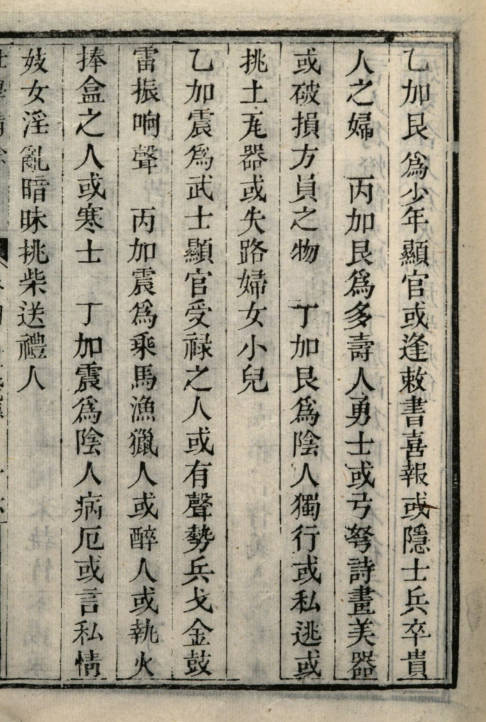 乙加艮爲少年顯官或逢敕書喜報或隱士兵卒貴
人之婦　丙加艮爲多壽人勇士或弓弩詩畫美器
或破損方員之物　丁加艮爲陰人獨行或私逃或
挑土瓦器或失路婦女小兒
乙加震爲武士顯官受祿之人或有聲勢兵戈金鼓
雷振响聲　丙加震爲乘馬漁獵人或醉人或執火
捧盒之人或寒士　丁加震爲陰人病厄或言私情
妓女淫亂暗昧挑柴送禮人